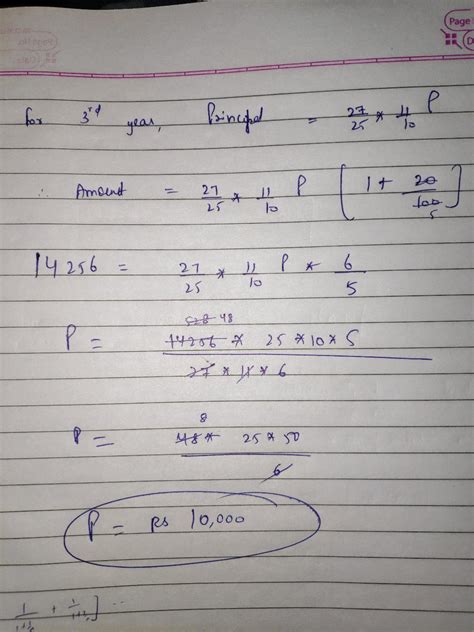 Page
D
for 3rd year, Principal = 27/25 * 11/10 P
∴ Amount = 27/25 * 11/10 P [1 + 20/100 5
14256 = 27/25 * 11/10 P * 6/5
528 48
P = 14256 * 25 * 10 * 5
27 * 11 * 6
8
P = 48 * 25 * 50
6
P = Rs 10,000